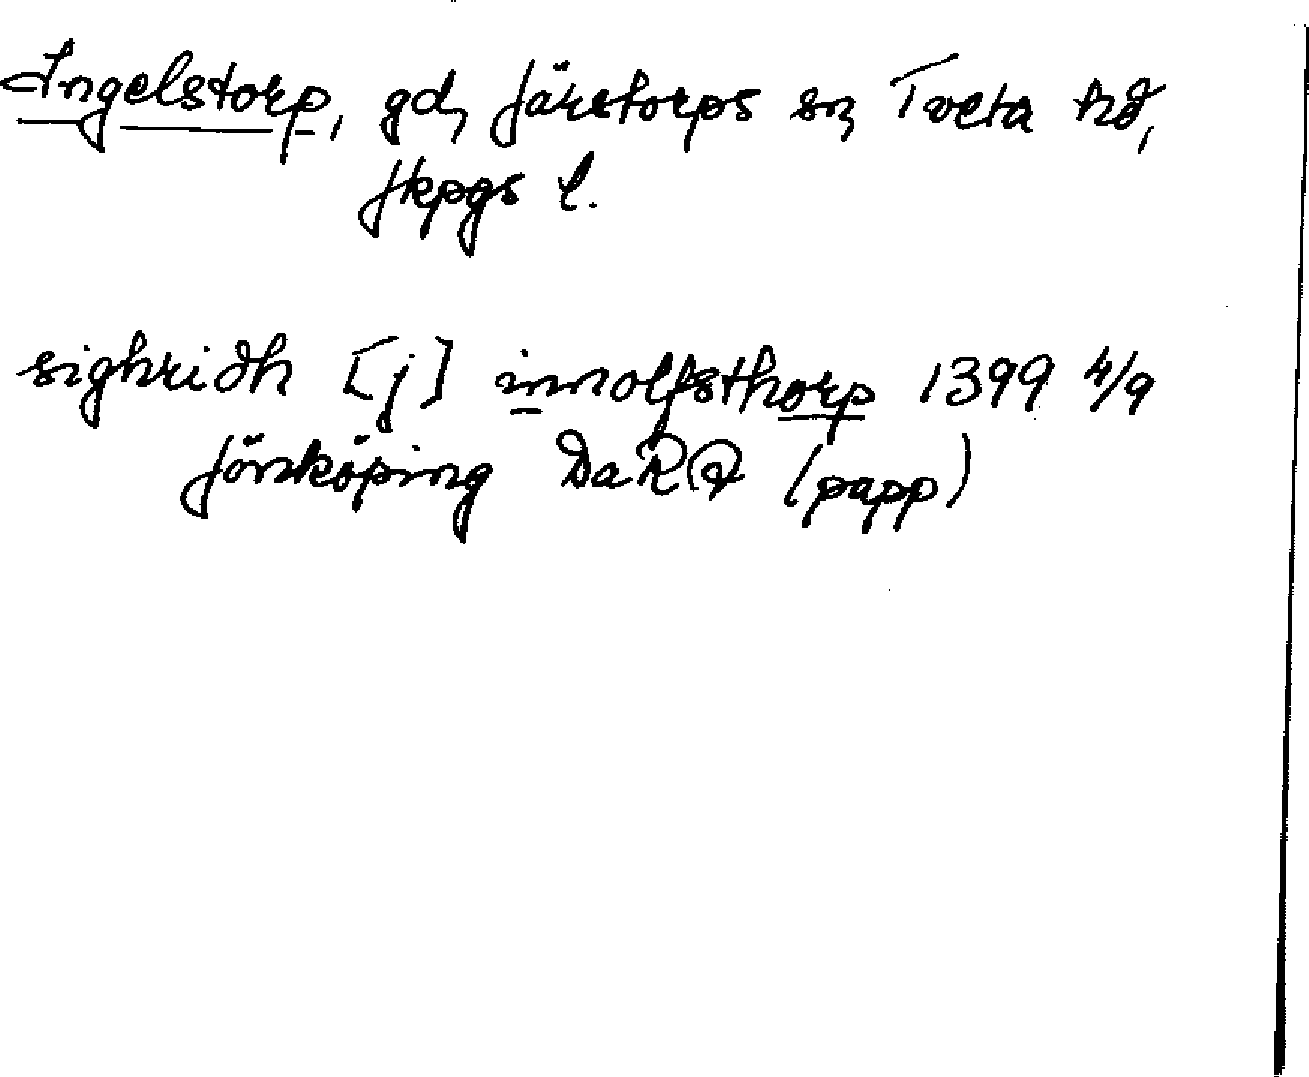 Ingelstorp, gd, Järstorps sn, Tveta hd,
Jkpgs l.
sighridh [j] innolfsthorp 1399 4/9
Jönköping DaRR (papp)